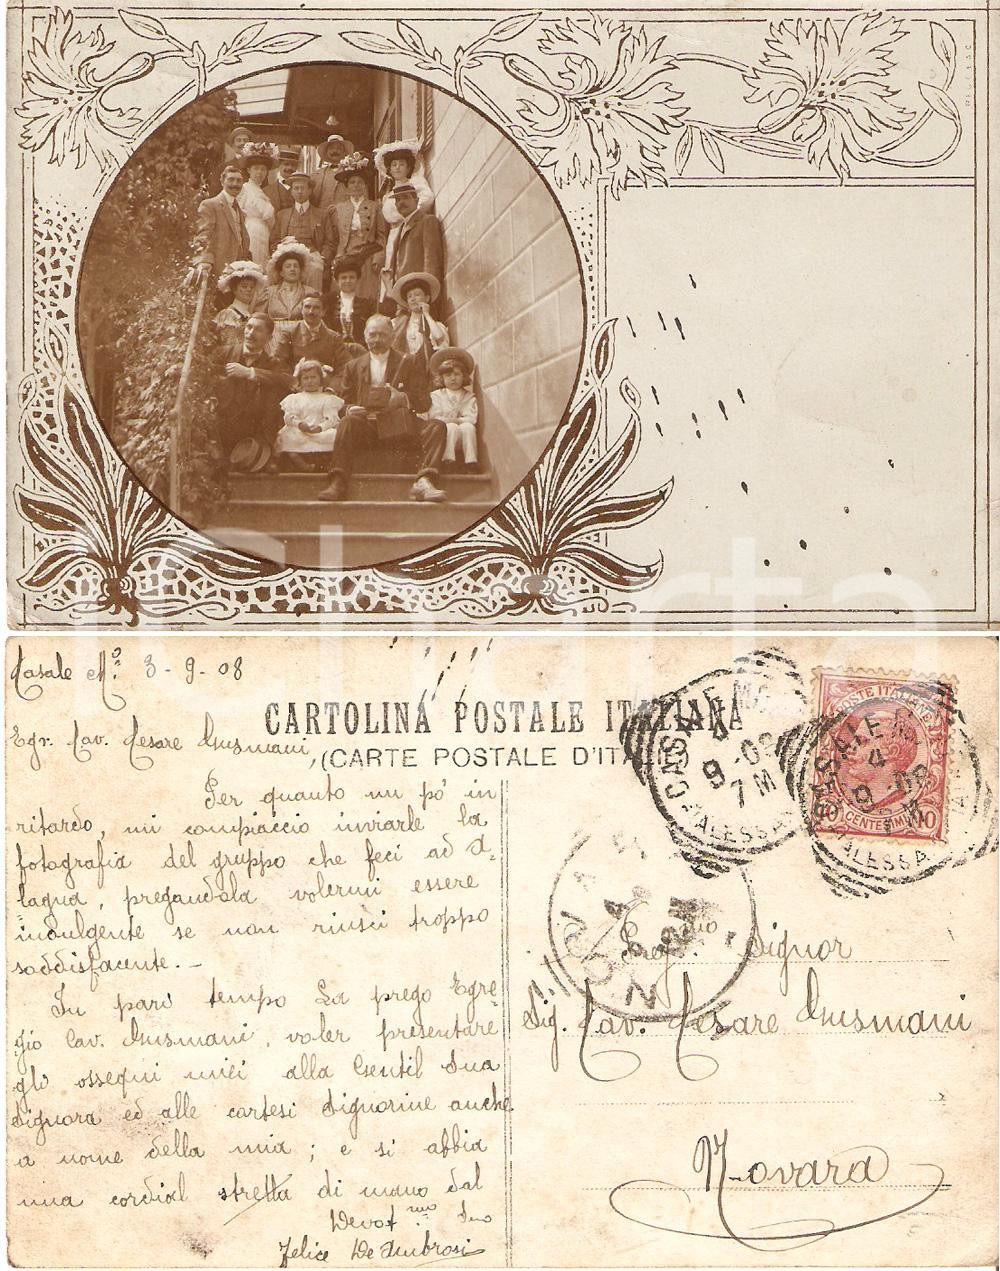 Casale M.º 3-9-08
CARTOLINA POSTALE ITALIANA
(CARTE POSTALE D'ITALIE)
Egr. Cav. Cesare Gusmani,
Per quanto un pò in
ritardo, mi compiaccio inviarle la
fotografia del gruppo che feci ad A-
lagna, pregandola volermi essere
indulgente se non riuscì troppo
soddisfacente.-
In pari tempo La prego Egre-
gio Cav. Gusmani, voler presentare
gli ossequi miei alla Gentil Sua
Signora ed alle cortesi Signorine anche
a nome della mia; e si abbia
una cordial stretta di mano dal
Devot.mo Suo
Felice De Ambrosi
CASALE MO
4
9-08
7M
(ALESSA
POSTE ITALIANE
10 CENTESIMI 10
CASALE MO
4
9-08
7M
(ALESSA
NOVARA
4
Preg.mo Signor
Sig. Cav. Cesare Gusmani
Novara